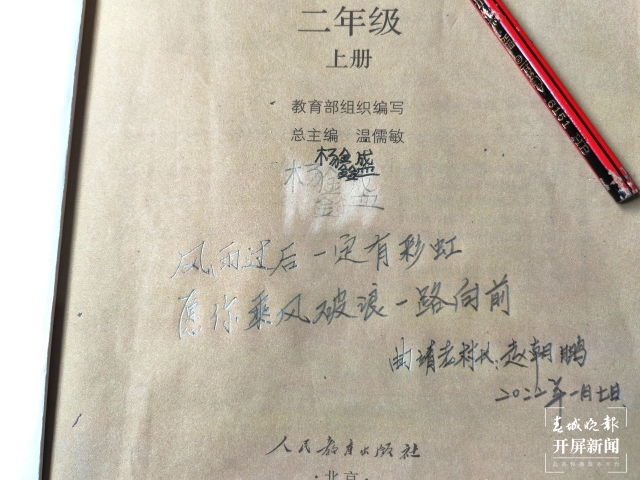 二年级
上册
教育部组织编写
总主编 温儒敏
杨鑫盛
风雨过后一定有彩虹
愿你乘风破浪一路向前
曲靖老村长:赵朝鹏
2022年一月七日
人民教育出版社
·北京·
6151
春城晚报
开屏新闻